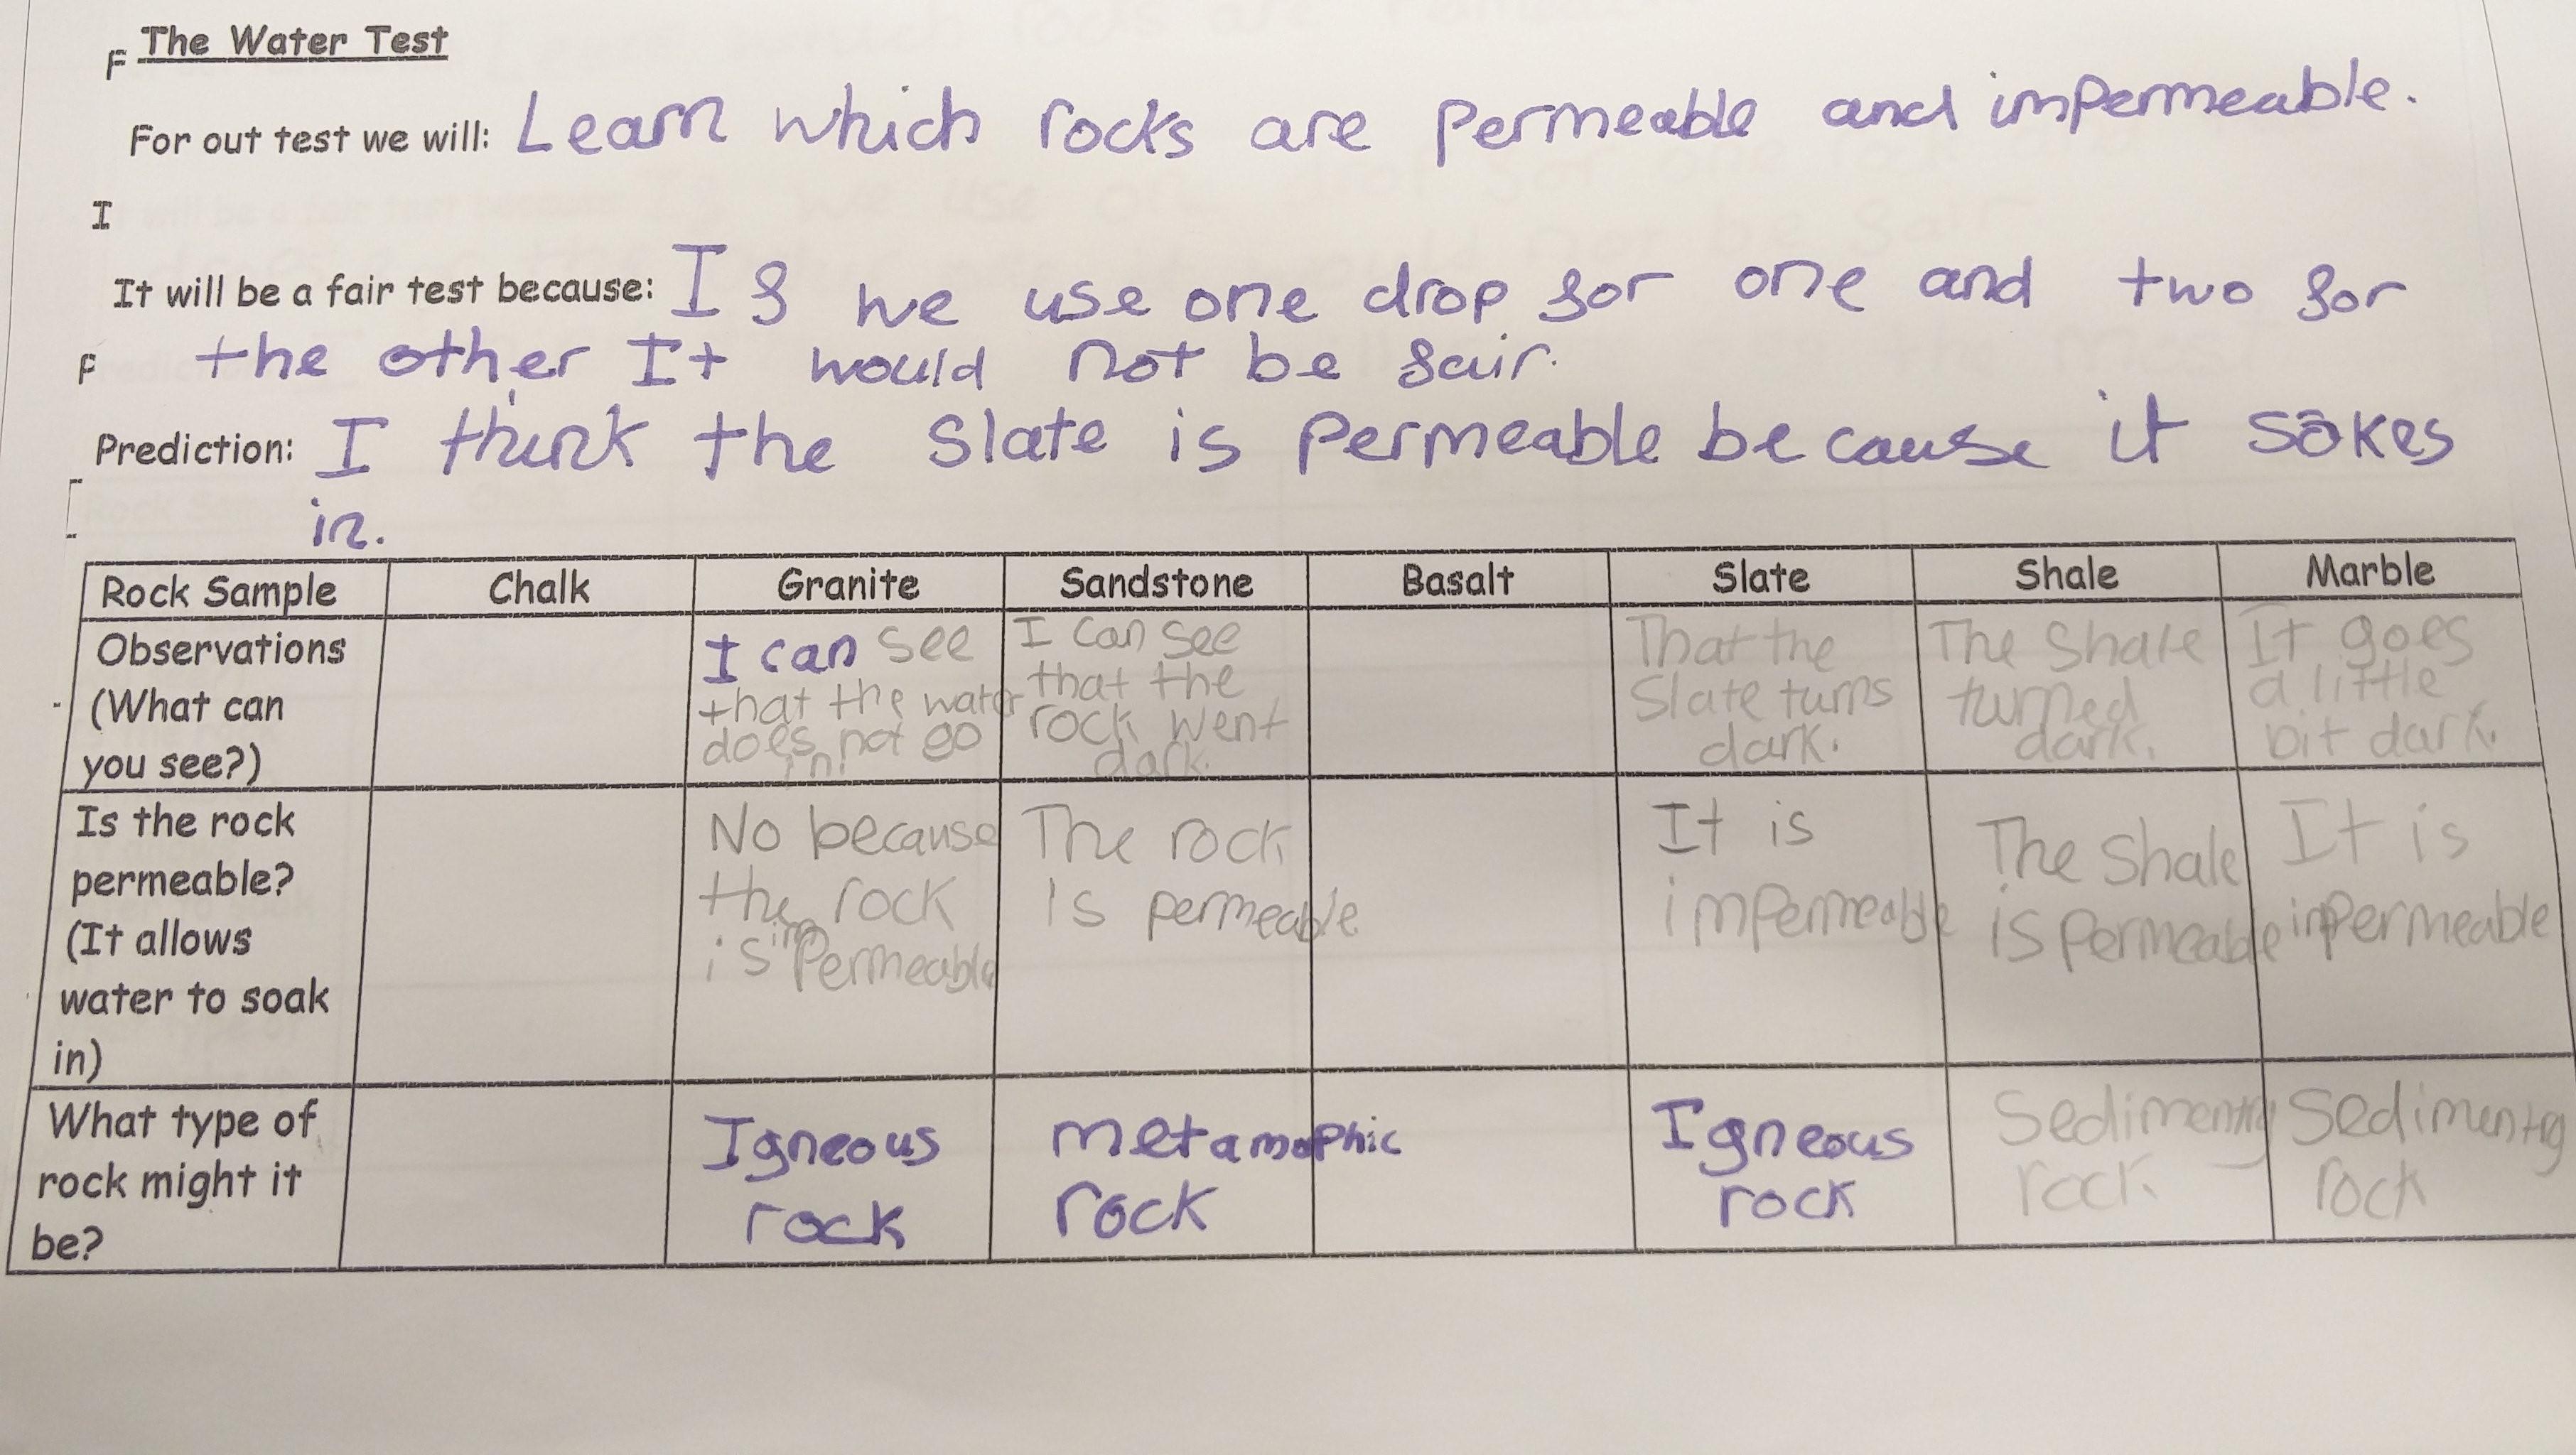 F The Water Test
For out test we will: Learn which rocks are permeable and impermeable.
I
It will be a fair test because: If we use one drop for one and two for
F the other It would not be fair.
Prediction: I think the Slate is permeable because it sokes
in.
Rock Sample Chalk Granite Sandstone Basalt Slate Shale Marble
Observations
(What can
you see?)
I can see
that the water
does not go
in!
I can see
that the
rock went
dark.
That the
Slate turns
dark.
The Shale
turned
dark.
It goes
a little
bit dark.
Is the rock
permeable?
(It allows
water to soak
in)
No because
the rock
is impermeable
The rock
is permeable
It is
impermeable
The Shale
is permeable
It is
impermeable
What type of
rock might it
be?
Igneous
rock
metamophic
rock
Igneous
rock
Sedimentry
rock
Sedimentry
rock